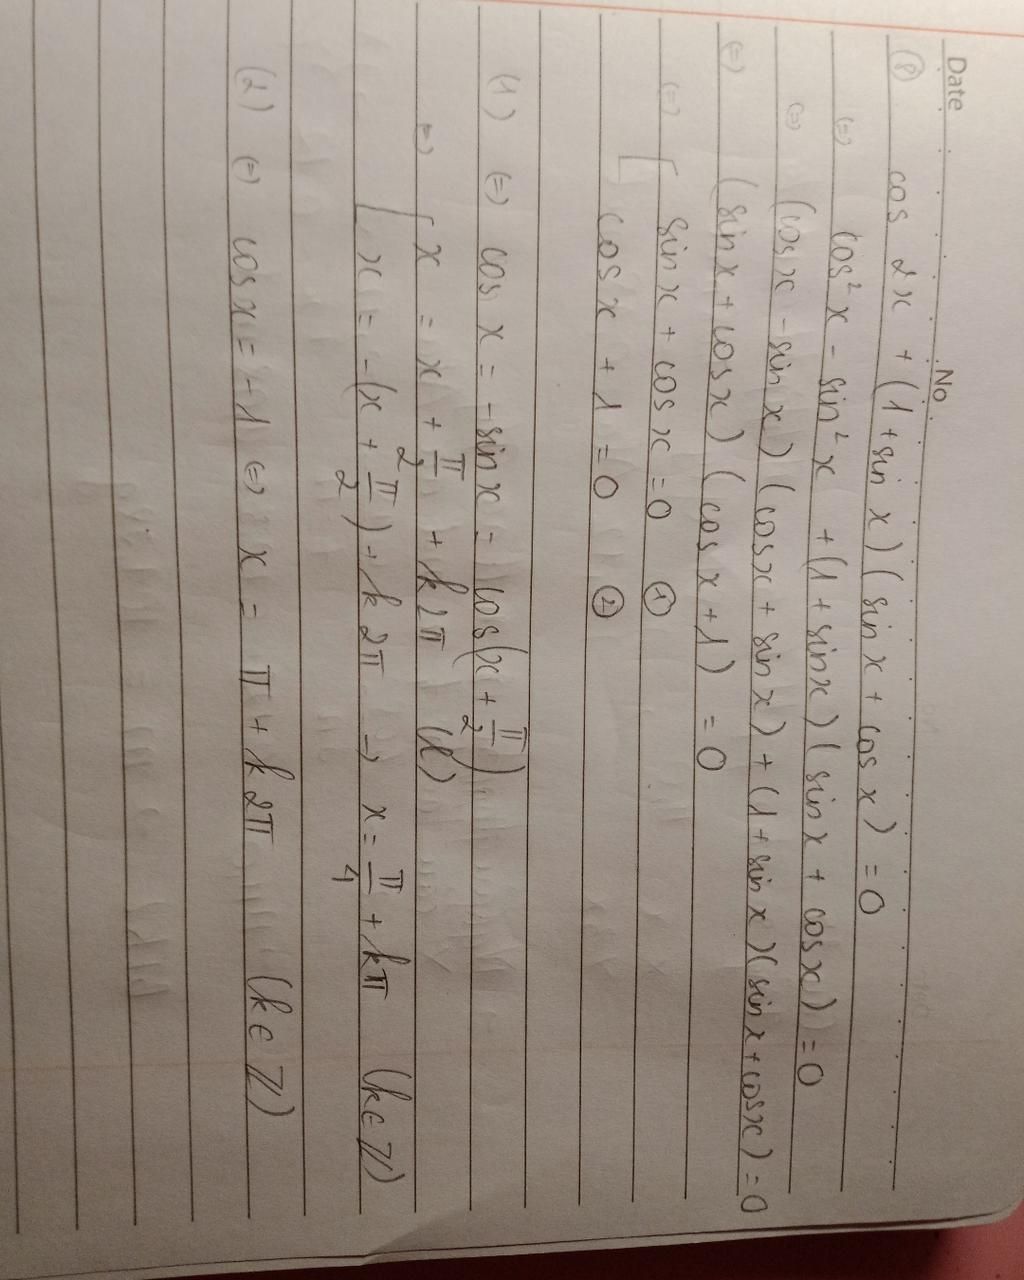 Date No.
⑧ cos 2x + (1 + sin x)(sin x + cos x) = 0
(=) cos²x - sin²x + (1 + sin x)(sin x + cos x) = 0
(=) (cos x - sin x)(cos x + sin x) + (1 + sin x)(sin x + cos x) = 0
(=) (sin x + cos x)(cos x + 1) = 0
(=) [ sin x + cos x = 0 ①
cos x + 1 = 0 ②
(1) (=) cos x = -sin x = cos(x + π/2)
(=) [ x = x + π/2 + k2π (l)
x = -(x + π/2) + k2π → x = π/4 + kπ (k ∈ Z)
(2) (=) cos x = -1 (=) x = π + k2π (k ∈ Z)